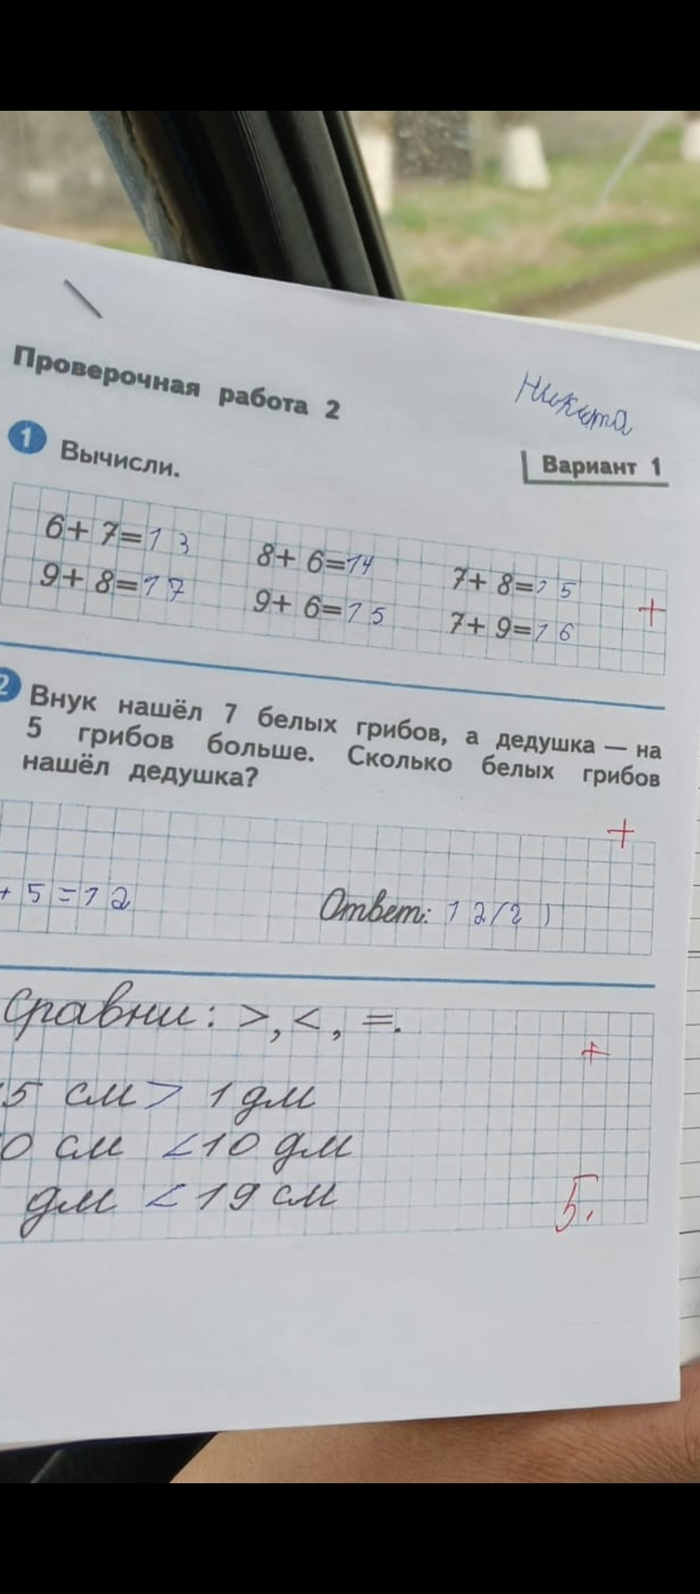 Никита
Проверочная работа 2
Вариант 1
1 Вычисли.
6+ 7=13 8+ 6=14 7+ 8=15
9+ 8=17 9+ 6=15 7+ 9=16
+
2 Внук нашёл 7 белых грибов, а дедушка — на
5 грибов больше. Сколько белых грибов
нашёл дедушка?
+
+ 5 = 12 Ответ: 12(г)
Сравни: >, <, =.
+
5 см > 1 дм
0 см < 10 дм
дм < 19 см
5.